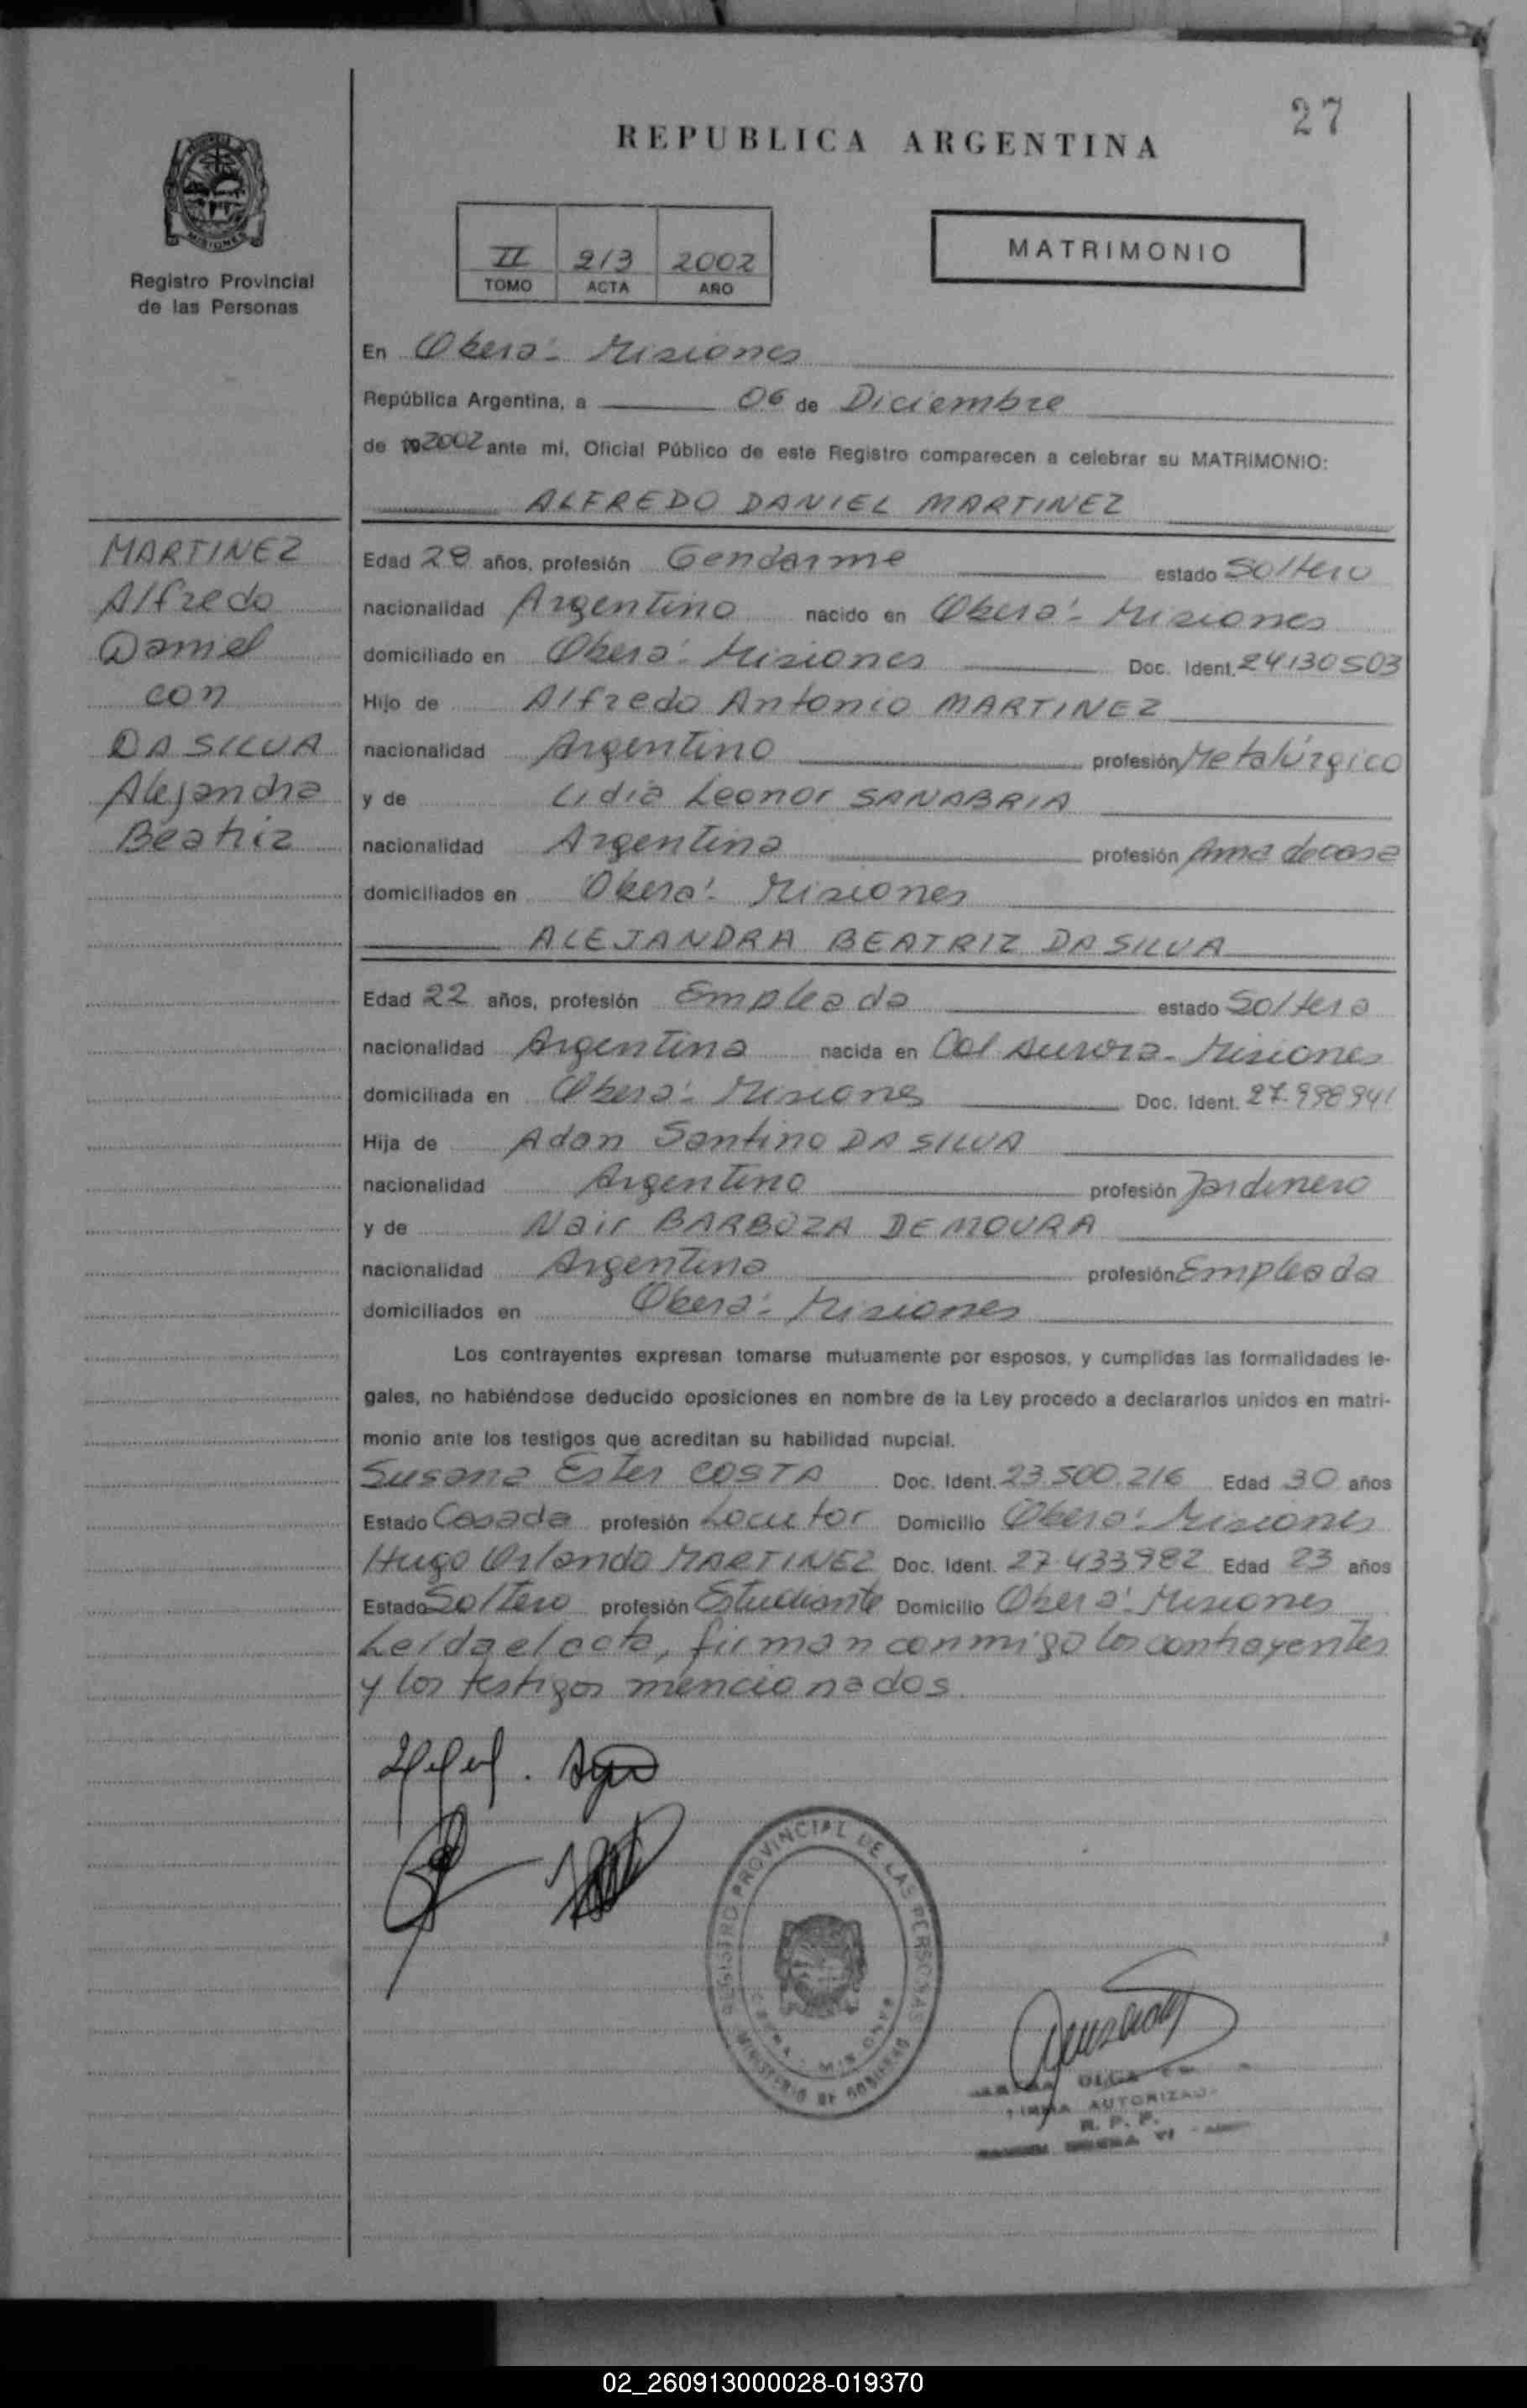 27
REPUBLICA ARGENTINA
MISIONES
Registro Provincial
de las Personas
II 213 2002
TOMO ACTA AÑO
MATRIMONIO
En Oberá - Misiones
República Argentina, a 06 de Diciembre
de 19 2002 ante mi, Oficial Público de este Registro comparecen a celebrar su MATRIMONIO:
ALFREDO DANIEL MARTINEZ
MARTINEZ
Alfredo
Daniel
con
DA SILVA
Alejandra
Beatriz
Edad 28 años, profesión Gendarme estado Soltero
nacionalidad Argentino nacido en Oberá - Misiones
domiciliado en Oberá - Misiones Doc. Ident. 24130503
Hijo de Alfredo Antonio MARTINEZ
nacionalidad Argentino profesión Metalúrgico
y de Lidia Leonor SANABRIA
nacionalidad Argentina profesión Ama de casa
domiciliados en Oberá - Misiones
ALEJANDRA BEATRIZ DA SILVA
Edad 22 años, profesión Empleada estado Soltera
nacionalidad Argentina nacida en Col Aurora - Misiones
domiciliada en Oberá - Misiones Doc. Ident. 27.998941
Hija de Adan Santino DA SILVA
nacionalidad Argentino profesión Jardinero
y de Nair BARBOZA DE MOURA
nacionalidad Argentina profesión Empleada
domiciliados en Oberá - Misiones
Los contrayentes expresan tomarse mutuamente por esposos, y cumplidas las formalidades le-
gales, no habiéndose deducido oposiciones en nombre de la Ley procedo a declararlos unidos en matri-
monio ante los testigos que acreditan su habilidad nupcial.
Susana Ester COSTA Doc. Ident. 23.500.216 Edad 30 años
Estado Casada profesión Locutor Domicilio Oberá - Misiones
Hugo Orlando MARTINEZ Doc. Ident. 27.433982 Edad 23 años
Estado Soltero profesión Estudiante Domicilio Oberá - Misiones
Leída el acta, firman conmigo los contrayentes
y los testigos mencionados.
REGISTRO PROVINCIAL DE LAS PERSONAS
MINISTERIO DE GOBIERNO
OLGA
FIRMA AUTORIZADA
R. P. P.
02_260913000028-019370